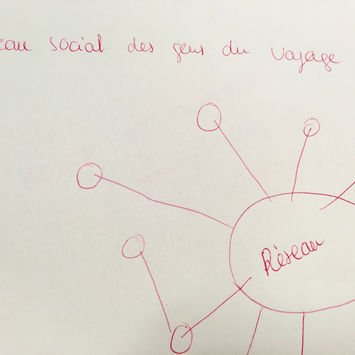 eau social des gens du voyage
Réseau